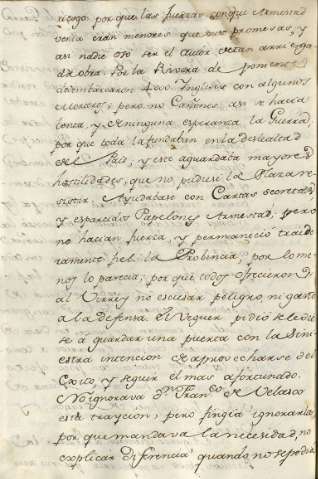 riesgo, porque las fuerzas conque Armestad
venia eran menores que sus promesas, y
asi nadie osó ser el Autor de tan arriesga
da obra. Por la Rivera de
desembarcaron 4000 Ingleses con algunos
Morteros, pero no Cañones; asi se hacia
lenta, y de ninguna esperanza la Guerra
por que toda la fundaban en la deslealtad
del Pais, y ese aguardaba mayores
hostilidades, que no pudiese la Plaza re-
sistir. Ayudabase con Cartas secretas
y esparcidos Papelones Armestad, pero
no hacian fuerza, y permaneció
fiel la Probincia, por lo me
nos lo parecia; por que todos ofrecieron
al Virrey no escusar peligro, ni gasto
a la defensa. El Veguer pidió se le die
se á guardar una puerta con la Sini
estra intencion de aprovecharse del
exito, y seguir el mas afortunado.
No ignorava Dn. Franco. de Velasco
esta traycion; pero fingia ignorarla
por que mandava la necesidad, no
explicar diferencia quando no se podia